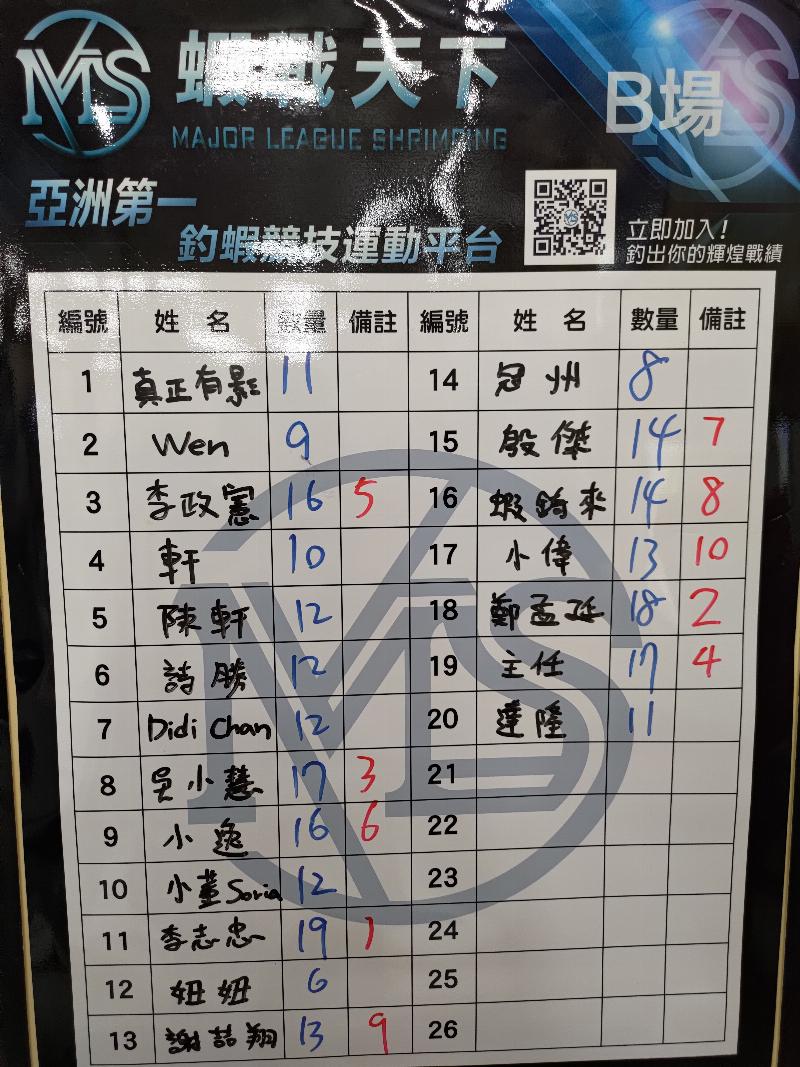 MS
蝦戰天下
MAJOR LEAGUE SHRIMPING
B場
亞洲第一
釣蝦競技運動平台
立即加入!
釣出你的輝煌戰績
編號 姓名 數量 備註 編號 姓名 數量 備註
1 真正有影 11 14 冠州 8
2 Wen 9 15 殷傑 14 7
3 李政憲 16 5 16 蝦錡來 14 8
4 軒 10 17 小偉 13 10
5 陳軒 12 18 鄭孟廷 18 2
6 詩勝 12 19 主任 17 4
7 Didi Chan 12 20 達隆 11
8 吳小慧 17 3 21
9 小逸 16 6 22
10 小董Soria 12 23
11 李志忠 19 1 24
12 妞妞 6 25
13 謝喆翔 13 9 26